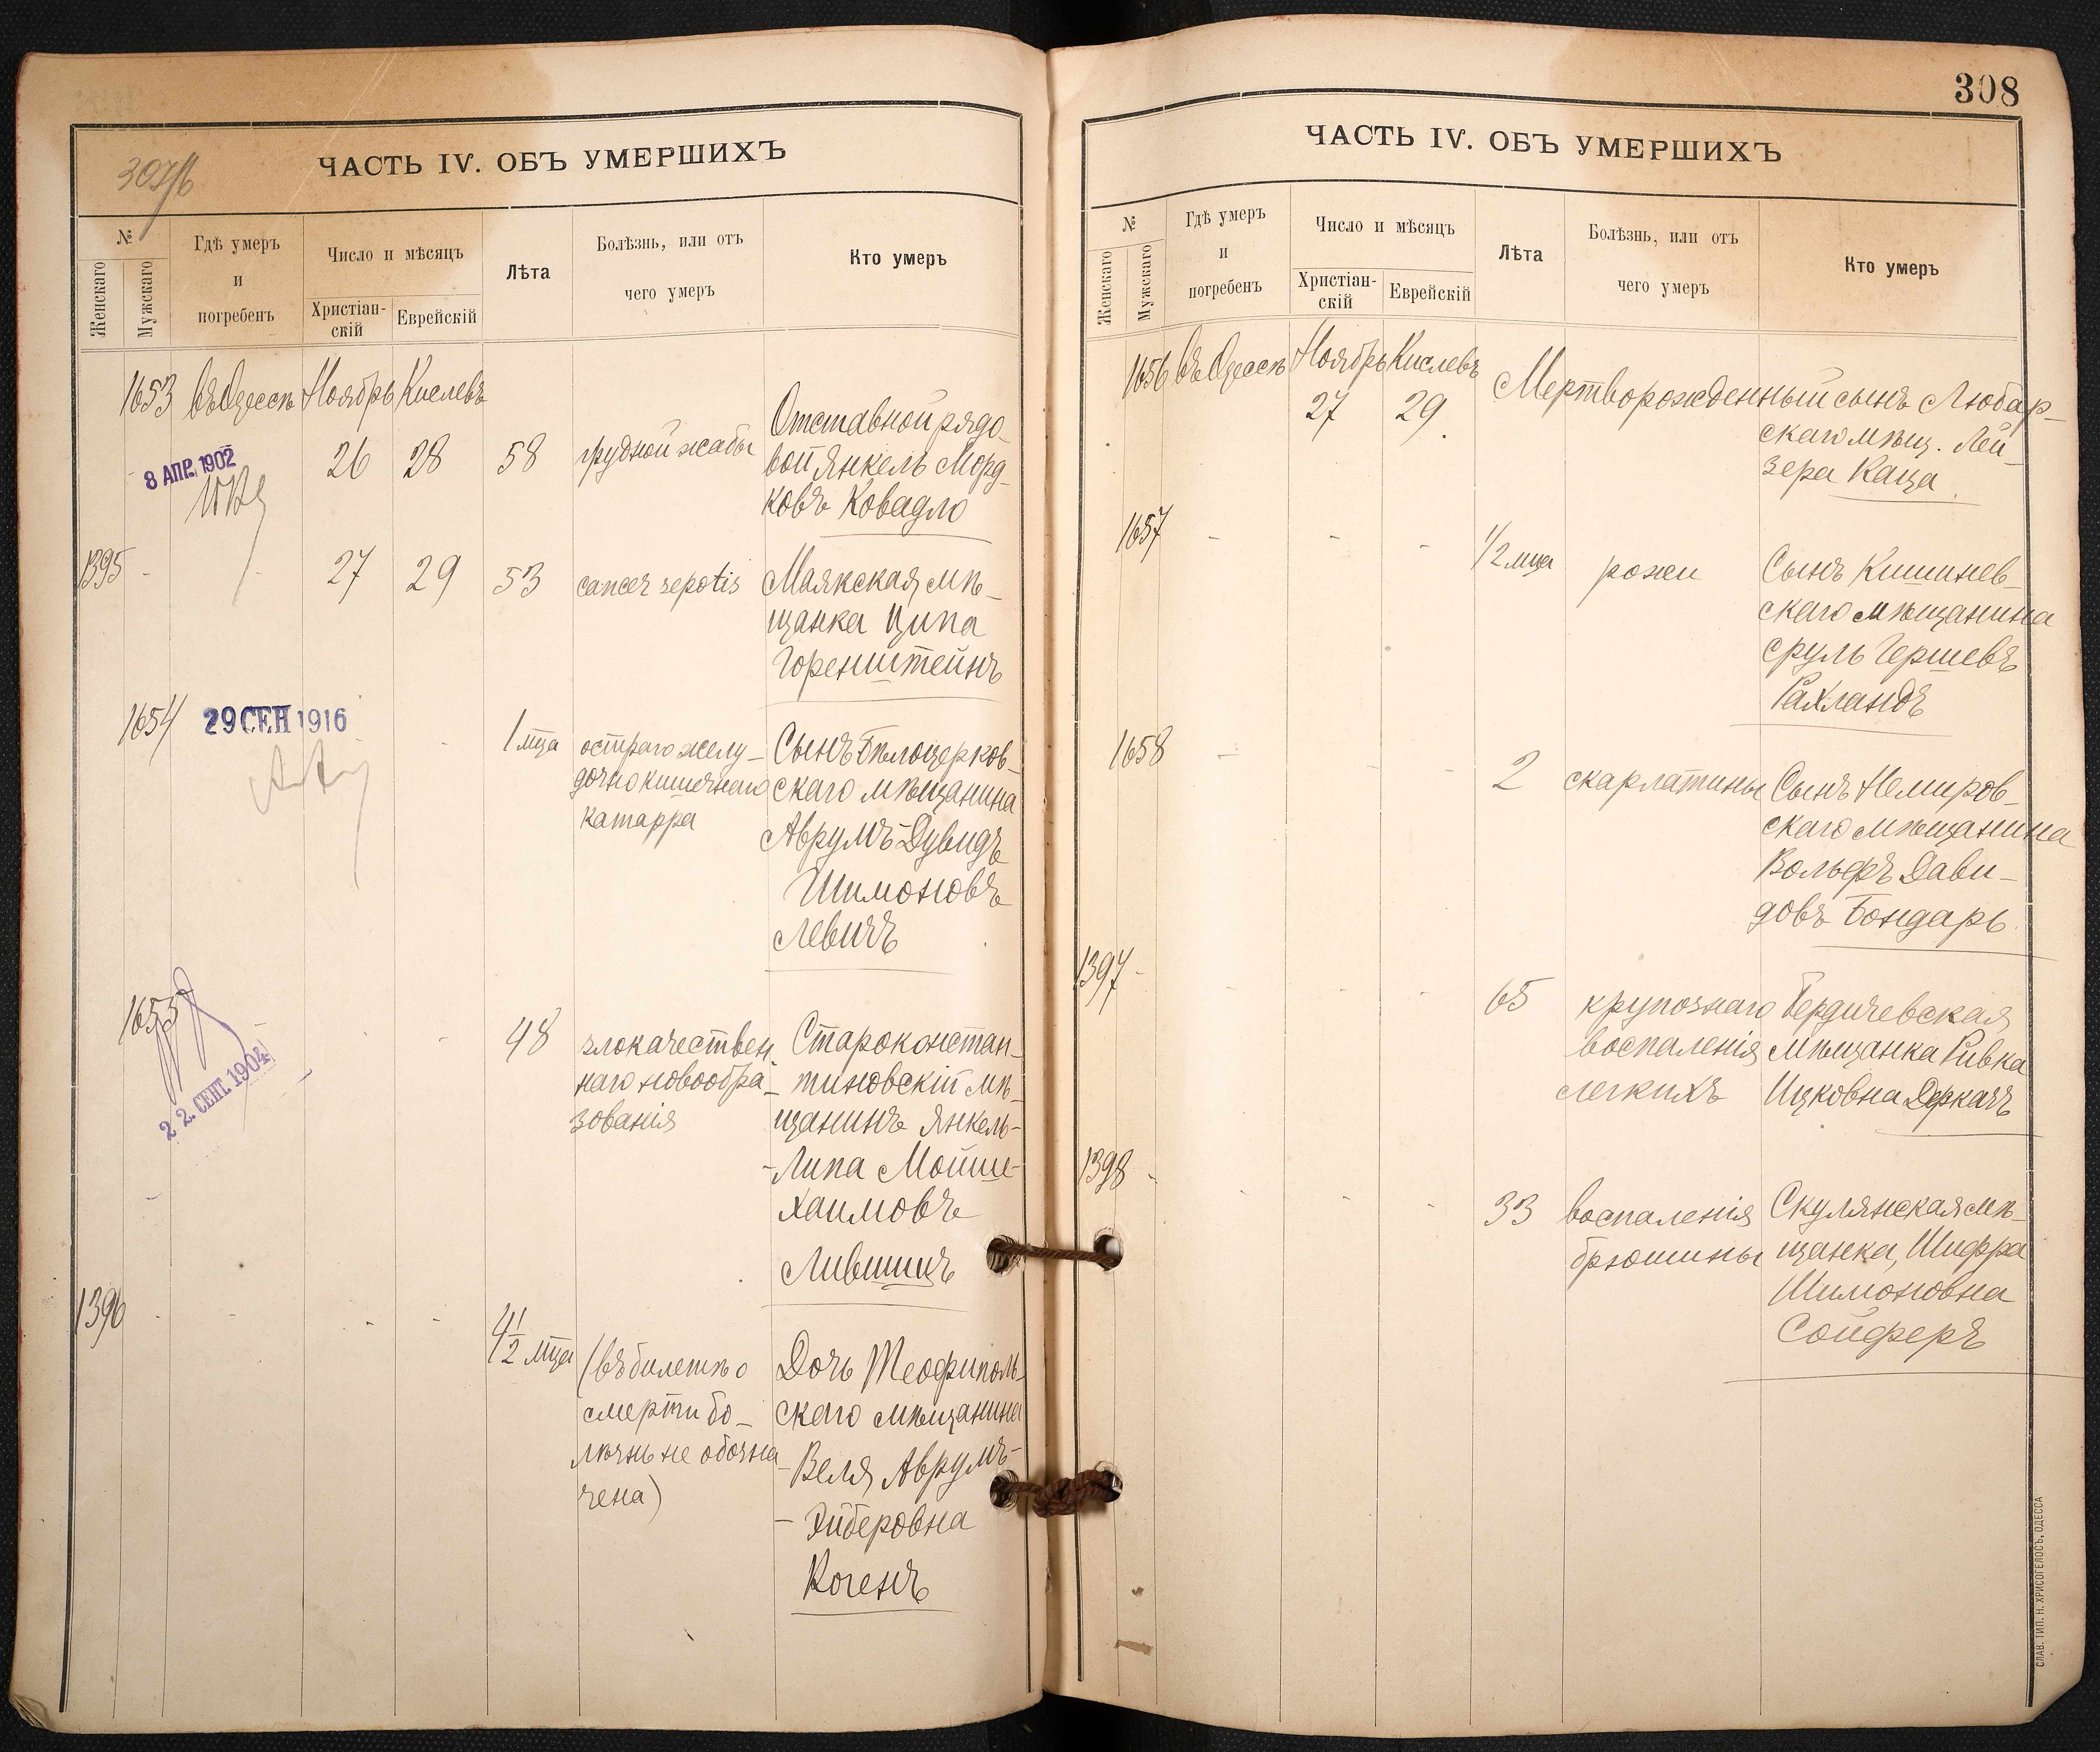 ЧАСТЬ IV. ОБЪ УМЕРШИХЪ
№
Женскаго
Мужскаго
Гдѣ умеръ
и
погребенъ
Число и мѣсяцъ
Христіан-
скій
Еврейскій
Лѣта
Болѣзнь, или отъ
чего умеръ
Кто умеръ
1653 въ Одессѣ Ноябрь Кислевъ
26 28 58 грудной жабы
Отставной рядо-
вой Янкель Морд-
ковъ Ковадло
8 АПР. 1902
1395 - 27 29 53 cancer
Маякская мѣ-
щанка Ципа
Горенштейнъ
1654
29 СЕН 1916
1 мца
остраго желу-
дочно кишечнаго
катарра
Сынъ Бѣлоцерков-
скаго мѣщанина
Аврумъ-Дувидъ
Шимоновъ
Левичъ
1655
22. СЕНТ. 1904
48
злокачествен
наго новообра-
зованія
Староконстан-
тиновскій мѣ-
щанинъ Янкель-
-Липа Мойше-
Хаимовъ
Лившицъ
1396
4 1/2 мца
(въ билетѣ о
смерти бо-
лѣзнь не обозна
чена)
Дочь Теофиполь-
скаго мѣщанина
Веля Аврумъ-
Когенъ
308
ЧАСТЬ IV. ОБЪ УМЕРШИХЪ
№
Женскаго
Мужскаго
Гдѣ умеръ
и
погребенъ
Число и мѣсяцъ
Христіан-
скій
Еврейскій
Лѣта
Болѣзнь, или отъ
чего умеръ
Кто умеръ
1656 въ Одессѣ Ноябрь Кислевъ
27 29
Мертворожденный сынъ Любар-
скаго мѣщ. Лей-
зера Каца
1657 - - - 1/2 мца рожи
Сынъ Кишинев-
скаго мѣщанина
Сруль Гершевъ
Рахландъ
1658 - - - 2 скарлатины
Сынъ Немиров-
скаго мѣщанина
Вольфъ Дави-
довъ Бондарь
1397 - - - - 65
крупознаго
воспаленія
легкихъ
Бердичевская
мѣщанка Ривка
Ицковна Деркачъ
1398 - - - - 33
воспаленія
брюшины
Скулянская мѣ-
щанка, Шифра
Шимоновна
Сойферъ
СЛАВ. ТИП. Н. ХРИСОГЕЛОСЪ, ОДЕССА